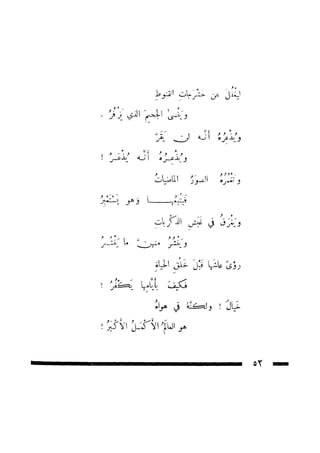 ليَغْفُلَ من حشْرجاتِ القنوطِ
ويَنْسىٰ الجحيمَ الذي يَزْفُرُ .
ويُذْعِرُهُ أنَّه لن يَقَرّ
ويُذْعِرُهُ أنَّه يُذْعَرُ !
وتَغْمُرُهُ الصوَرُ الماضياتُ
فيَتْبَعُهـــا وهو يَسْتَمْهِرُ
ويَغْرقُ في غَبَشِ الذكْرياتِ
ويَنْشُرُ منهنَّ ما يَنْشُرُ
رؤىً عاشَها قَبْلَ خَلْقِ الحياةِ
فكيفَ بأيَّامِها يَكْفُرُ !
خَيالٌ ! ولكنَّهُ في هواهُ
هو العالَمُ الأكْمَلُ الأكْبَرُ !
٥٣